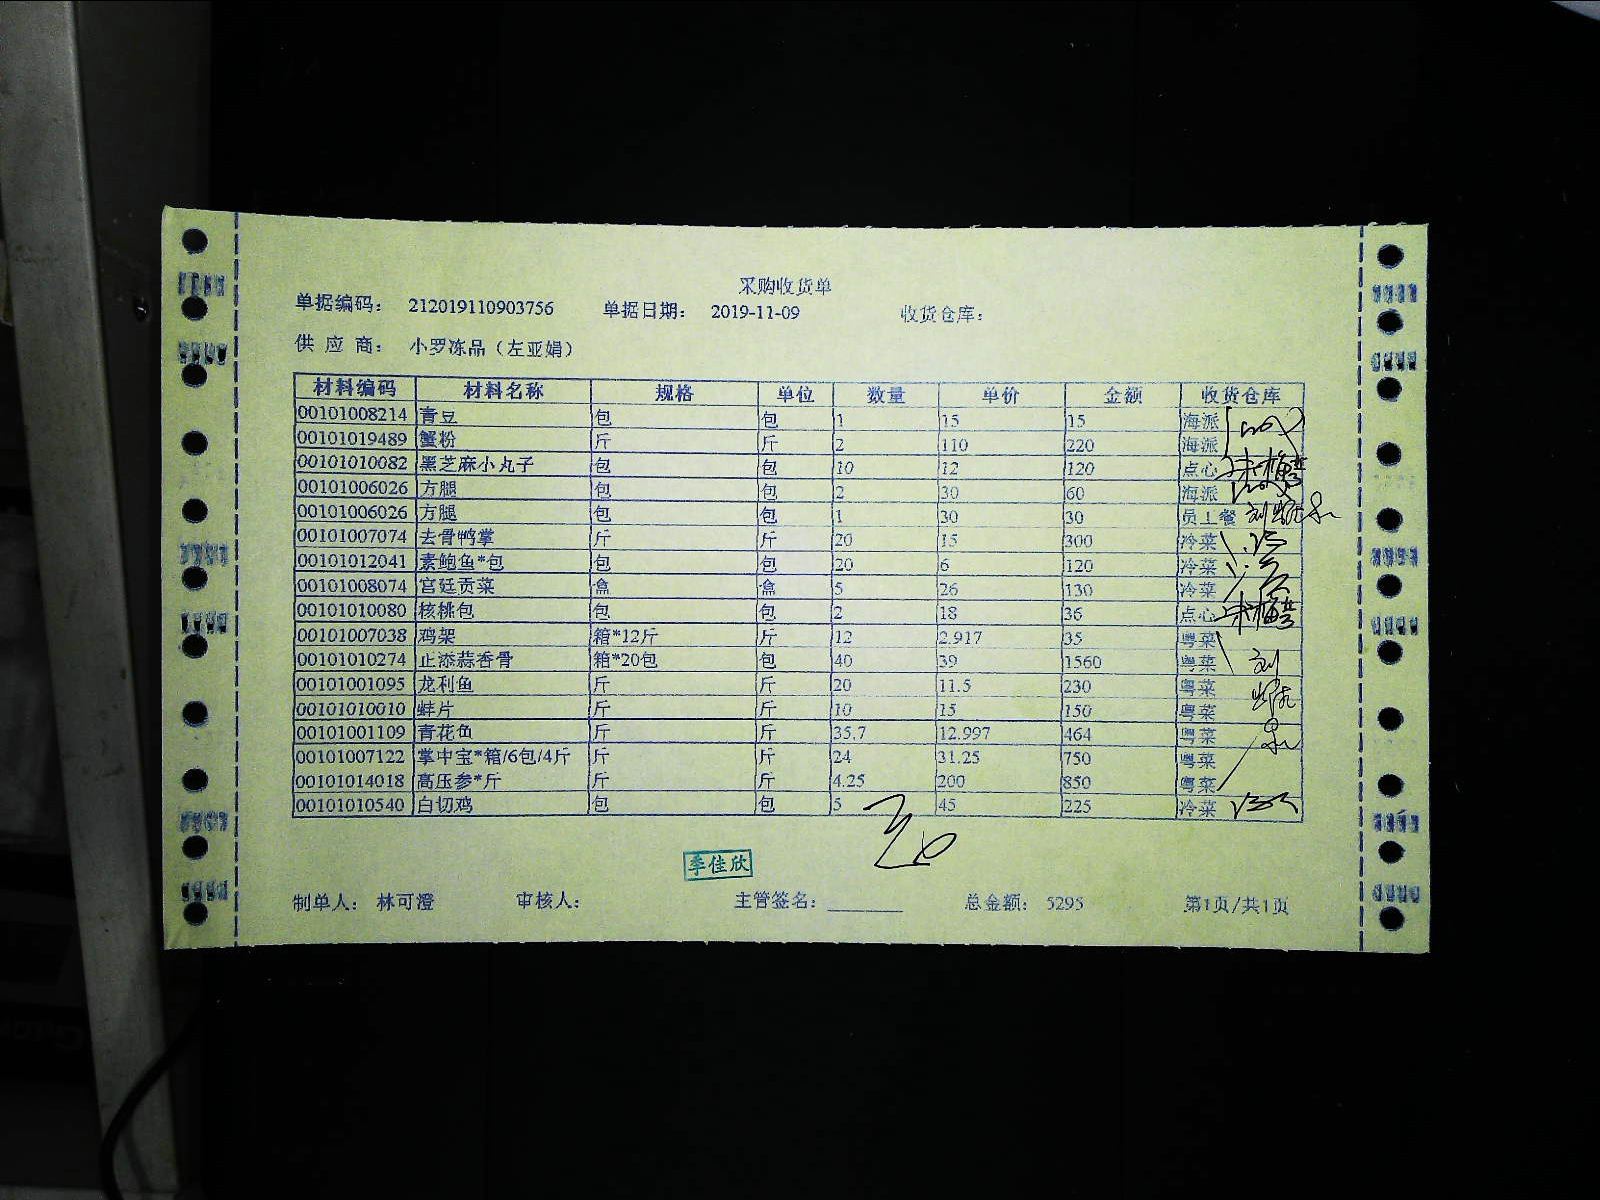 采购收货单
单据编码： 212019110903756 单据日期： 2019-11-09 收货仓库：
供 应 商： 小罗冻品（左亚娟）
材料编码 材料名称 规格 单位 数量 单价 金额 收货仓库
00101008214 青豆 包 包 1 15 15 海派
00101019489 蟹粉 斤 斤 2 110 220 海派
00101010082 黑芝麻小丸子 包 包 10 12 120 点心
00101006026 方腿 包 包 2 30 60 海派
00101006026 方腿 包 包 1 30 30 员工餐
00101007074 去骨鸭掌 斤 斤 20 15 300 冷菜
00101012041 素鲍鱼*包 包 包 20 6 120 冷菜
00101008074 宫廷贡菜 盒 盒 5 26 130 冷菜
00101010080 核桃包 包 包 2 18 36 点心
00101007038 鸡架 箱*12斤 斤 12 2.917 35 粤菜
00101010274 止添蒜香骨 箱*20包 包 40 39 1560 粤菜
00101001095 龙利鱼 斤 斤 20 11.5 230 粤菜
00101010010 蚌片 斤 斤 10 15 150 粤菜
00101001109 青花鱼 斤 斤 35.7 12.997 464 粤菜
00101007122 掌中宝*箱/6包/4斤 斤 斤 24 31.25 750 粤菜
00101014018 高压参*斤 斤 斤 4.25 200 850 粤菜
00101010540 白切鸡 包 包 5 45 225 冷菜
季佳欣
制单人： 林可澄 审核人： 主管签名： 总金额： 5295 第1页/共1页